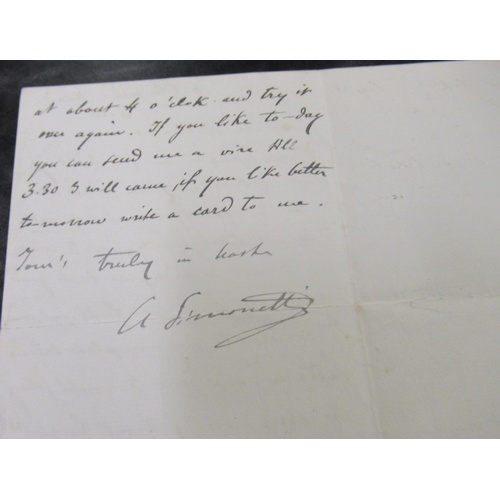 at about 4 o'clok and try it
over again. If you like to-day
you can send me a wire till
3.30 I will come, if you like better
to-morrow write a card to me.
Your's truly in haste
A Simonetti